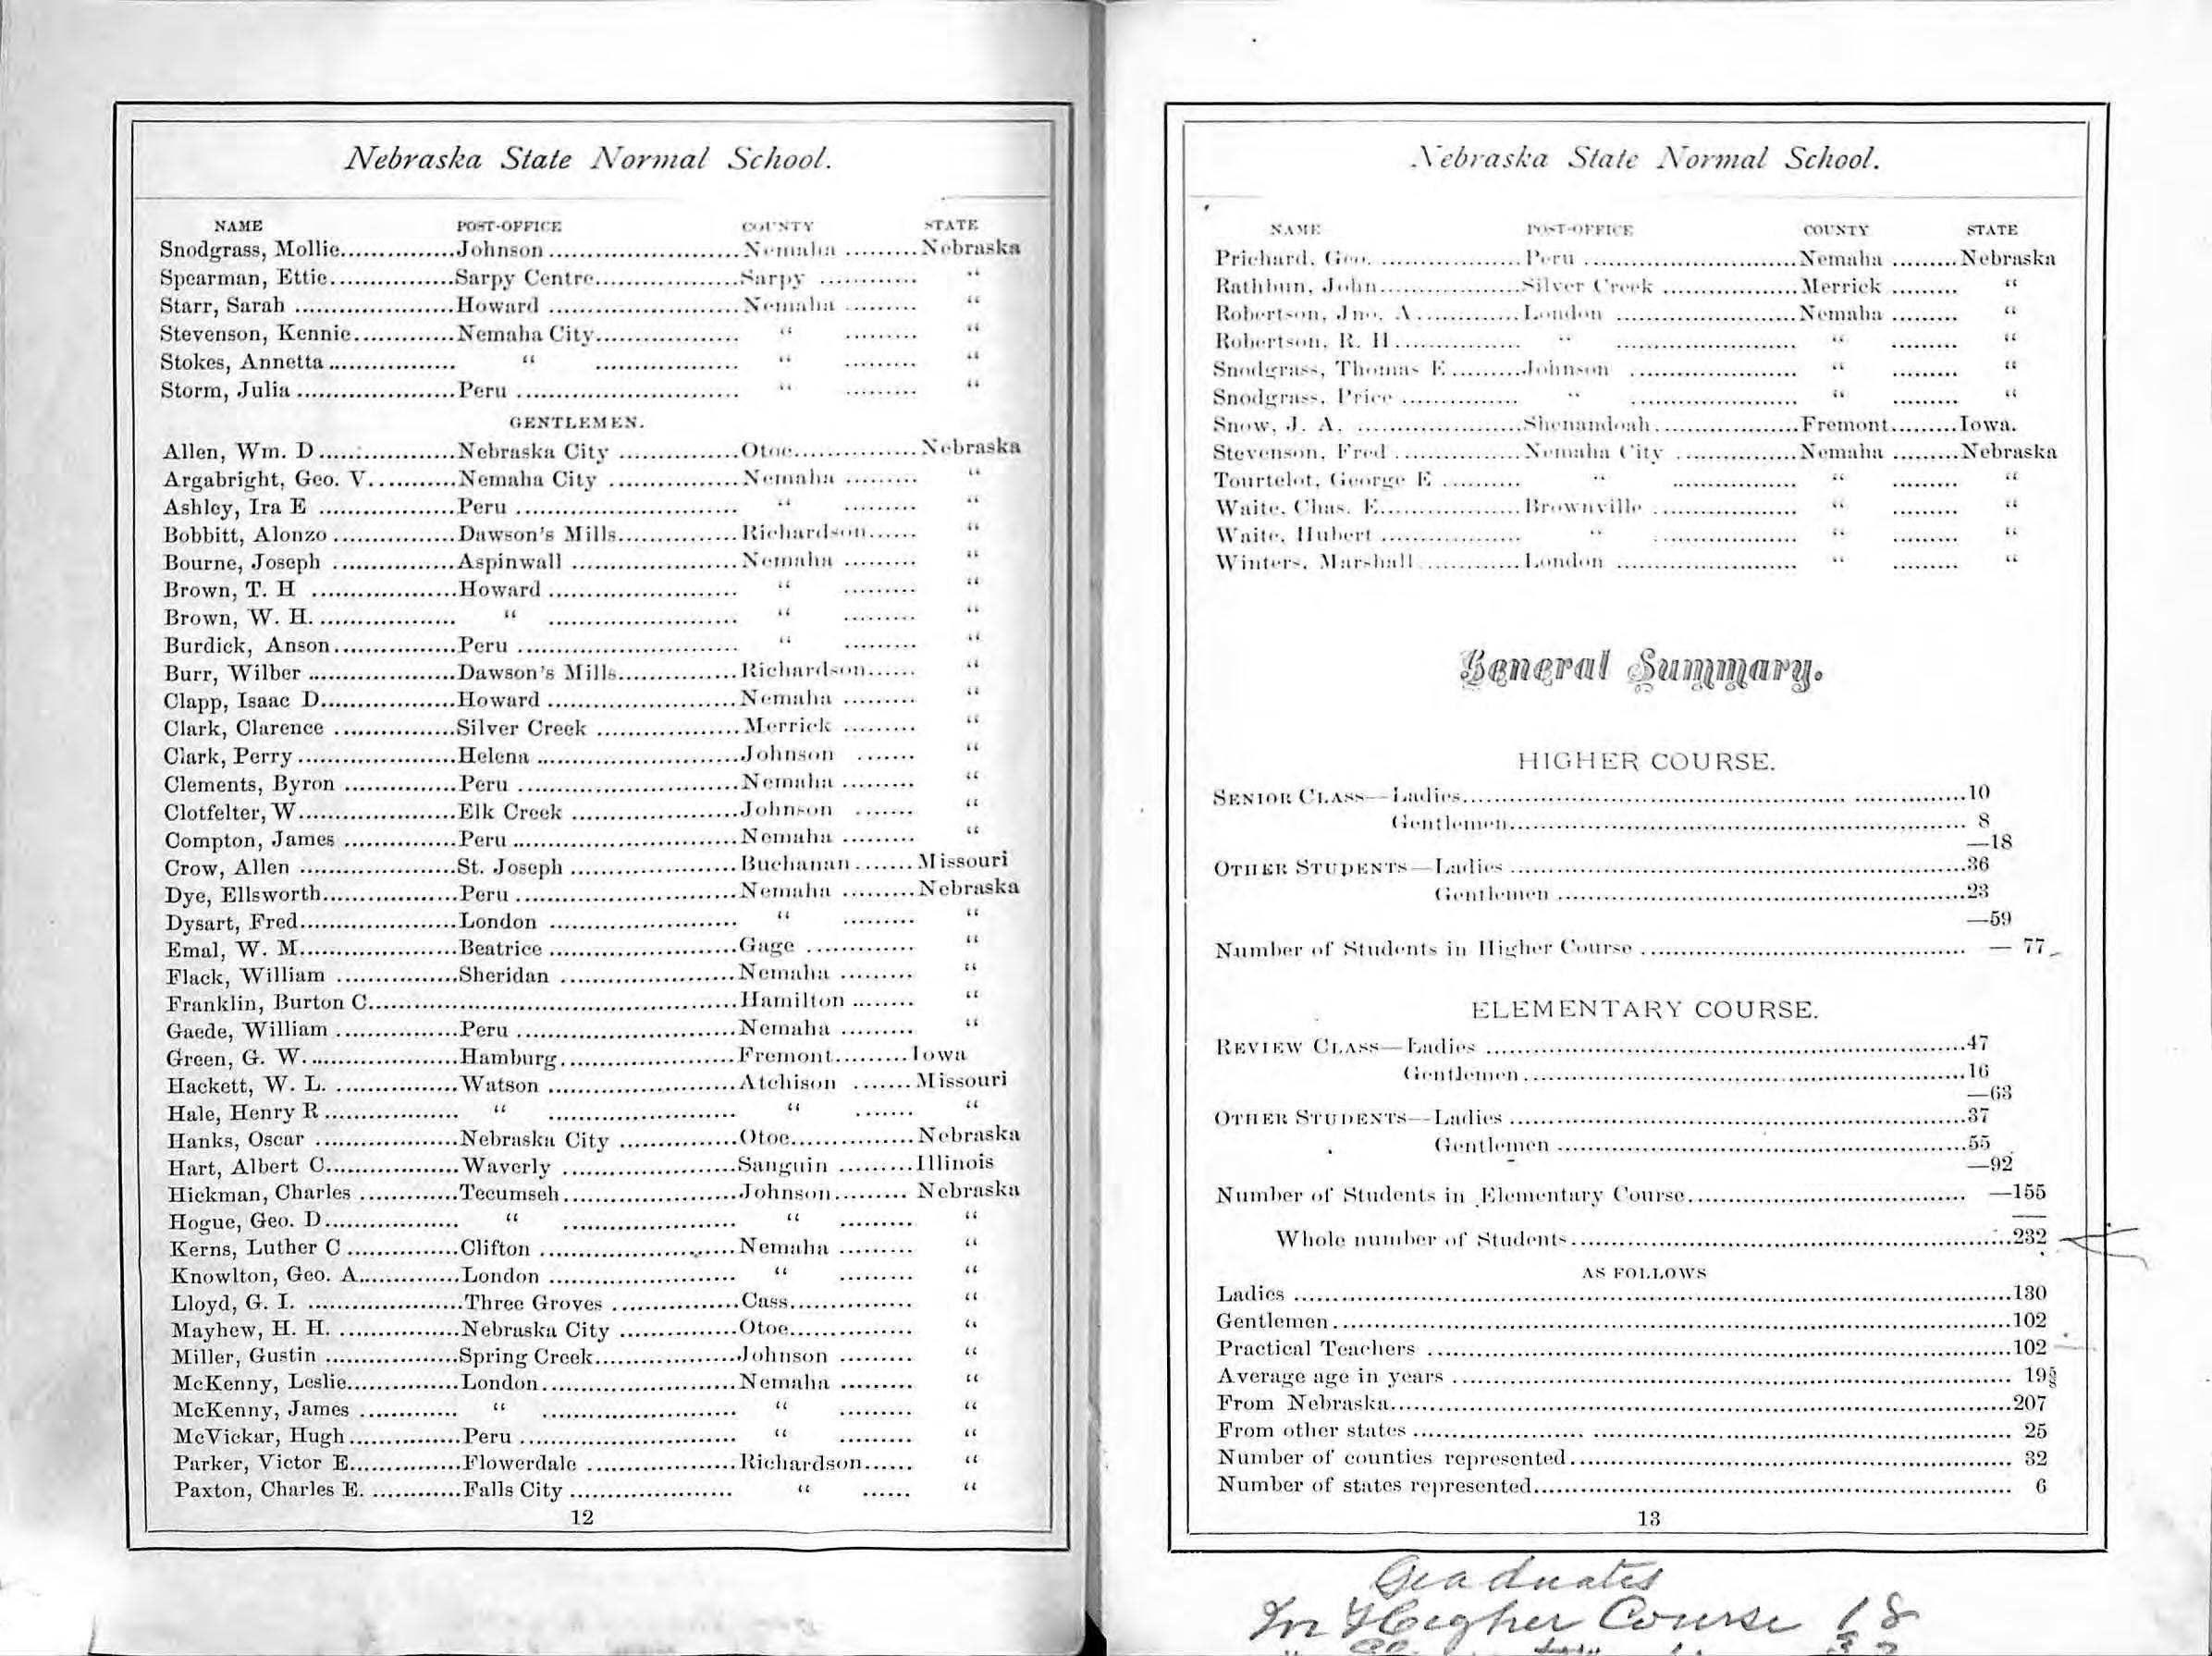 Nebraska State Normal School.
NAME POST-OFFICE COUNTY STATE
Snodgrass, Mollie................Johnson...........................Nemaha..........Nebraska
Spearman, Ettie..................Sarpy Centre....................Sarpy.............. “
Starr, Sarah.......................Howard...........................Nemaha.......... “
Stevenson, Kennie..............Nemaha City.................... “ .......... “
Stokes, Annetta.................. “ .................... “ .......... “
Storm, Julia.......................Peru................................ “ .......... “
GENTLEMEN.
Allen, Wm. D....................Nebraska City.................Otoe................Nebraska
Argabright, Geo. V............Nemaha City..................Nemaha.......... “
Ashley, Ira E....................Peru................................ “ .......... “
Bobbitt, Alonzo.................Dawson's Mills.................Richardson...... “
Bourne, Joseph..................Aspinwall........................Nemaha.......... “
Brown, T. H.....................Howard........................... “ .......... “
Brown, W. H.................... “ ........................... “ .......... “
Burdick, Anson.................Peru................................ “ .......... “
Burr, Wilber.....................Dawson's Mills.................Richardson...... “
Clapp, Isaac D...................Howard...........................Nemaha.......... “
Clark, Clarence.................Silver Creek....................Merrick.......... “
Clark, Perry......................Helena............................Johnson......... “
Clements, Byron................Peru................................Nemaha.......... “
Clotfelter, W.....................Elk Creek........................Johnson......... “
Compton, James................Peru................................Nemaha.......... “
Crow, Allen......................St. Joseph........................Buchanan.......Missouri
Dye, Ellsworth..................Peru................................Nemaha..........Nebraska
Dysart, Fred.....................London........................... “ .......... “
Emal, W. M.....................Beatrice..........................Gage.............. “
Flack, William..................Sheridan.........................Nemaha.......... “
Franklin, Burton C.............................................Hamilton........ “
Gaede, William.................Peru................................Nemaha.......... “
Green, G. W.....................Hamburg.........................Fremont..........Iowa
Hackett, W. L...................Watson...........................Atchison........Missouri
Hale, Henry R.................. “ ........................... “ ....... “
Hanks, Oscar....................Nebraska City.................Otoe................Nebraska
Hart, Albert C...................Waverly..........................Sanguin..........Illinois
Hickman, Charles..............Tecumseh........................Johnson..........Nebraska
Hogue, Geo. D.................. “ ........................ “ .......... “
Kerns, Luther C................Clifton............................Nemaha.......... “
Knowlton, Geo. A..............London........................... “ .......... “
Lloyd, G. I.......................Three Groves..................Cass............... “
Mayhew, H. H..................Nebraska City.................Otoe............... “
Miller, Gustin...................Spring Creek....................Johnson.......... “
McKenny, Leslie................London...........................Nemaha.......... “
McKenny, James............... “ ........................... “ .......... “
McVickar, Hugh................Peru............................... “ .......... “
Parker, Victor E................Flowerdale......................Richardson...... “
Paxton, Charles E..............Falls City........................ “ ...... “
12
Nebraska State Normal School.
NAME POST-OFFICE COUNTY STATE
Prichard, Geo....................Peru................................Nemaha.........Nebraska
Rathbun, John...................Silver Creek....................Merrick......... “
Robertson, Jno. A..............London...........................Nemaha......... “
Robertson, R. H................ “ ........................... “ ......... “
Snodgrass, Thomas E.........Johnson.......................... “ ......... “
Snodgrass, Price................ “ .......................... “ ......... “
Snow, J. A.......................Shenandoah....................Fremont.........Iowa.
Stevenson, Fred.................Nemaha City..................Nemaha.........Nebraska
Tourtelot, George E............ “ .................. “ ......... “
Waite, Chas. E..................Brownville...................... “ ......... “
Waite, Hubert................... “ ...................... “ ......... “
Winters, Marshall..............London........................... “ ......... “
General Summary.
HIGHER COURSE.
SENIOR CLASS—Ladies..................................................10
Gentlemen.................................................. 8
—18
OTHER STUDENTS—Ladies..................................................36
Gentlemen..................................................23
—59
Number of Students in Higher Course.......................................... — 77
ELEMENTARY COURSE.
REVIEW CLASS—Ladies..................................................47
Gentlemen..................................................16
—63
OTHER STUDENTS—Ladies..................................................37
Gentlemen..................................................55
—92
Number of Students in Elementary Course.................................... —155
Whole number of Students..................................................232
AS FOLLOWS
Ladies..................................................130
Gentlemen..................................................102
Practical Teachers..................................................102
Average age in years..................................................
From Nebraska..................................................207
From other states.................................................. 25
Number of counties represented.................................................. 32
Number of states represented.................................................. 6
13
Graduates
In Higher Course 18